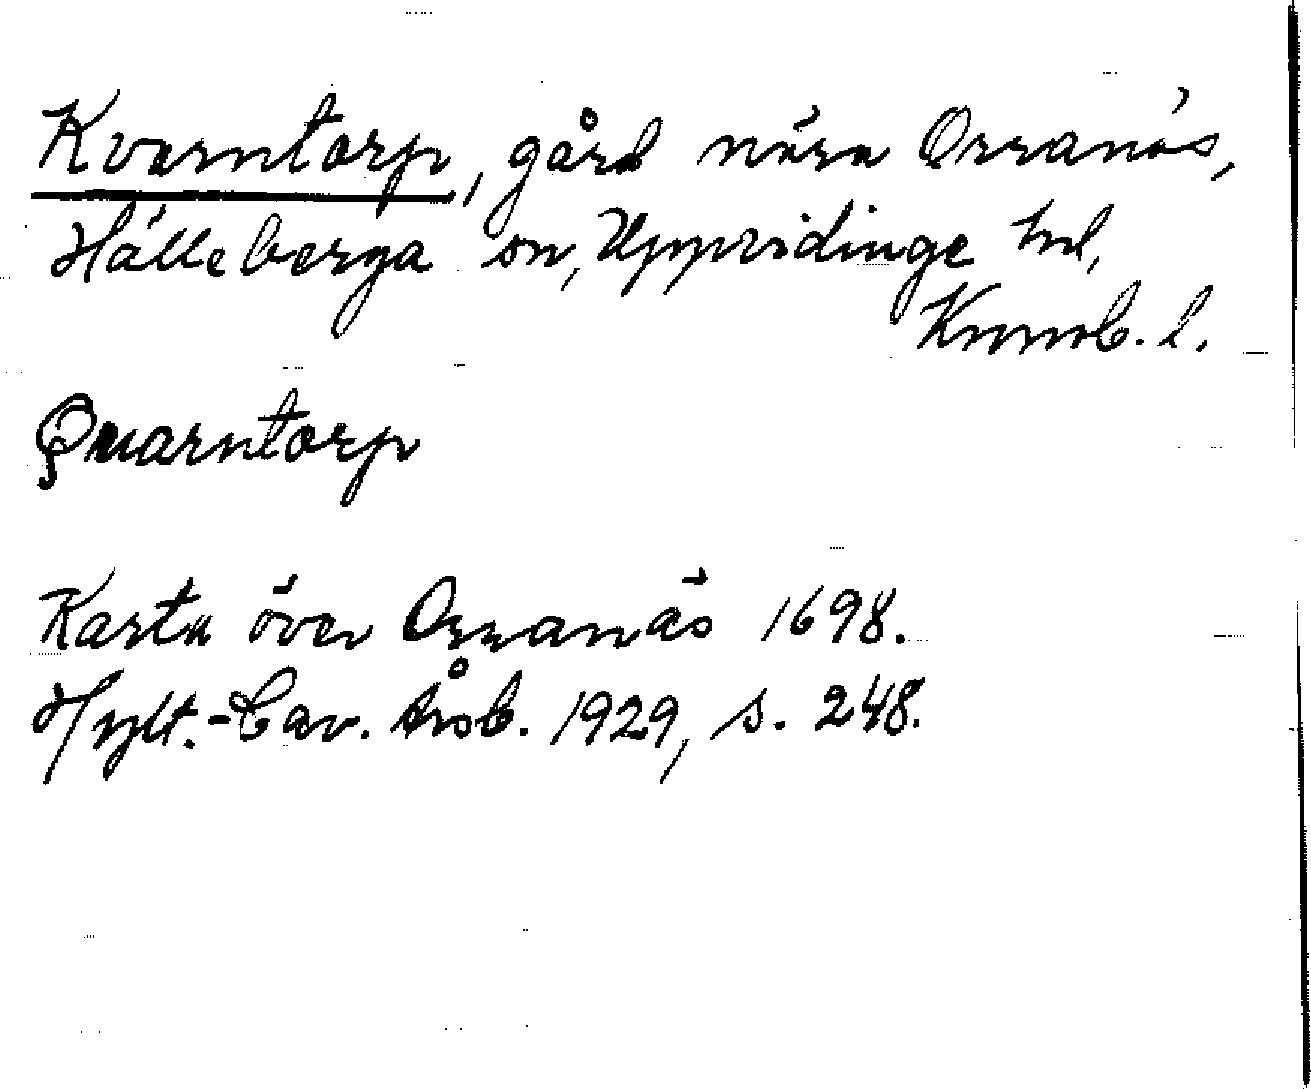 Kvarntorp, gård nära Orranäs,
Hälleberga sn, Uppvidinge hd,
Kronob. l.
Quarntorp
Karta över Orranäs 1698.
Hylt.-Cav. Årsb. 1929, s. 248.